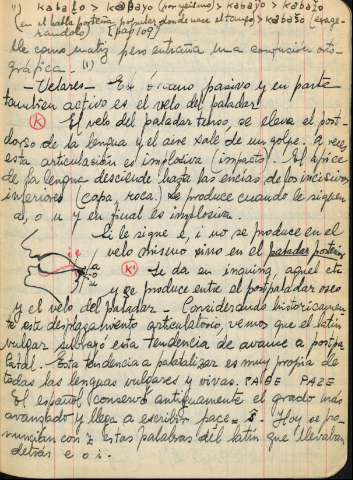 1) kabalo > kabayo (por yeísmo) > kabaJo > kabaʒo
(en el habla porteña popular donde nace el tango > kabaʃo (exage-
rándolo) [pag 109]
lle como matiz pero entraña una confusión orto-
gráfica. (1)
- Velares - Es órgano pasivo y en parte
también activo es el velo del paladar.
(K) El velo del paladar tenso, se eleva el post-
dorso de la lengua y el aire sale de un golpe. A veces
esta articulación es implosiva (impacto). El ápice
de la lengua desciende hasta las encías de los incisivos
inferiores (capa, roca). Se produce cuando le siguen
a, o, u y en final es implosiva.
Si le sigue e, i no se produce en el
velo mismo sino en el paladar posterior,
i e
a
o
u
(K') Se da en inquina, aquel etc
y se produce entre el postpaladar óseo
y el velo del paladar - Considerando históricamen-
te este desplazamiento articulatorio, vemos que el latín
vulgar subrayó esta tendencia de avance a postpa-
latal. - Esta tendencia a palatalizar es muy propia de
todas las lenguas vulgares y vivas. PACE PAZE
El español conservó antiguamente el grado más
avanzado y llega a escribir pace = ŝ. Hoy se pro-
nuncian con z estas palabras del latín que llevaban
detrás e o i.